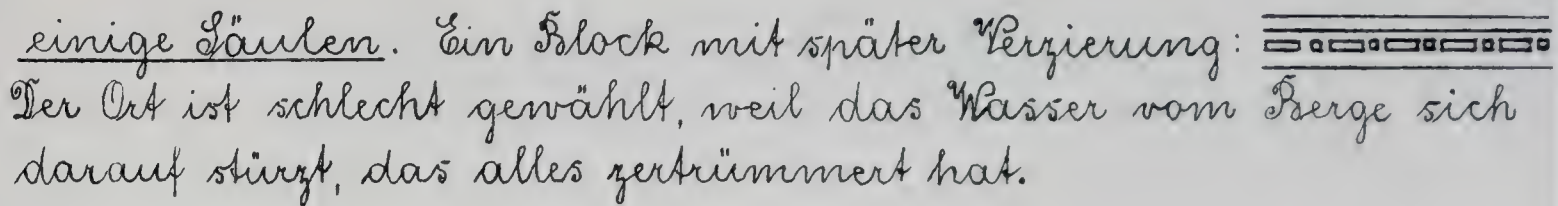 einige Säulen. Ein Block mit später Verzierung:
Der Ort ist schlecht gewählt, weil das Wasser vom Berge sich
darauf stürzt, das alles zertrümmert hat.